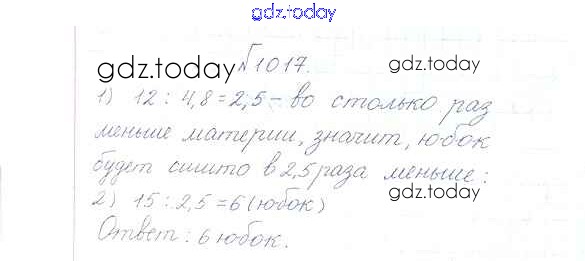 gdz.today
gdz.today №1017. gdz.today
1) 12 : 4,8 = 2,5 – во столько раз
меньше материи, значит, юбок
будет сшито в 2,5 раза меньше:
gdz.today
2) 15 : 2,5 = 6 (юбок)
gdz.today
Ответ: 6 юбок.